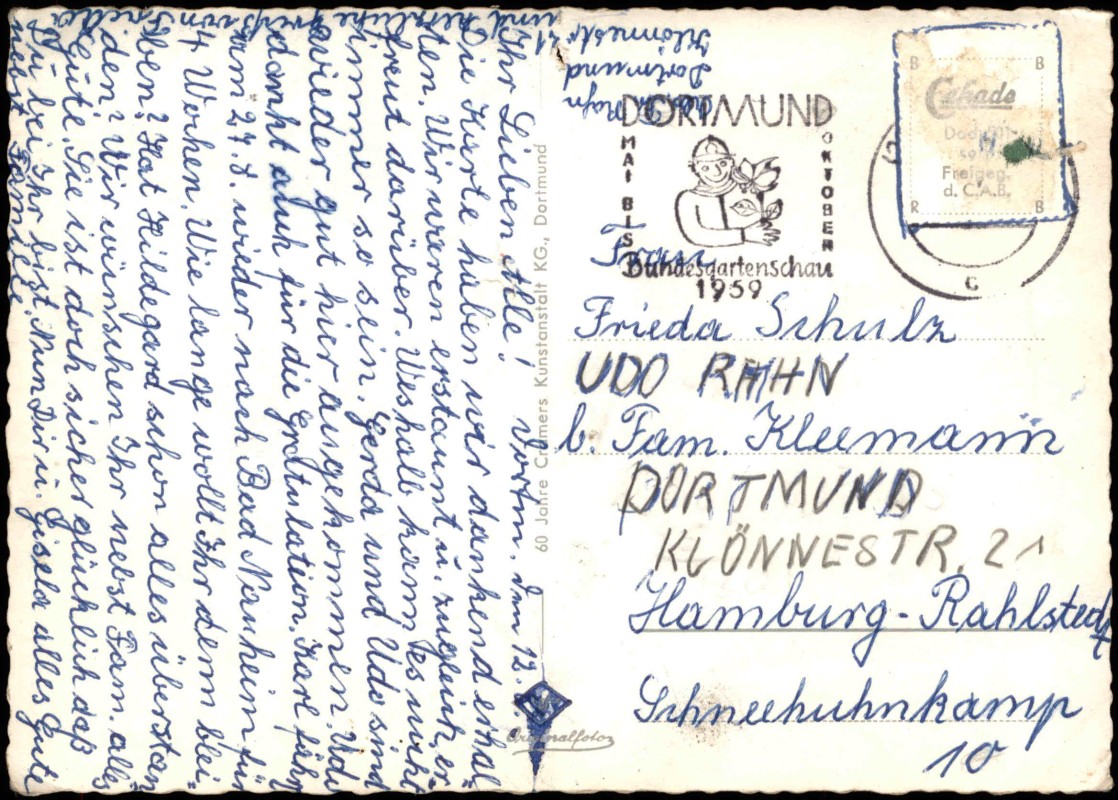 Ihr Lieben Alle! Dortm. 12.
Die Karte haben wir dankend erhal-
ten. Wir waren erstaunt u. zugleich er-
freut darüber. Weshalb kann es nicht
immer so sein. Gerda und Udo sind
wieder gut hier angekommen. Udo
dankt auch für die Gratulation. fährt
am 27. 8. wieder nach Bad Nauheim für
4 Wochen. Wie lange wollt Ihr denn blei-
ben? Hat Hildegard schon alles überstan
den? Wir wünschen Ihr nebst Fam. alles
Gute. Sie ist doch sicher glücklich daß
Du bei ihr bist. Nun Dir u. Gisela alles Gute
nebst Familie.
und herzliche von
60 Jahre Cramers Kunstanstalt KG., Dortmund
Originalfoto
Rahn
Dortmund
Klönnestr. 21
DORTMUND
MAI BIS
OKTOBER
Bundesgartenschau
1959
B B
Freigeg.
d. C.A.B.
R B
c
Frau
Frieda Schulz
UDO RAHN
b. Fam. Kleemann
DORTMUND
KLÖNNESTR. 21
Hamburg-Rahlstedt
Schneehuhnkamp
10